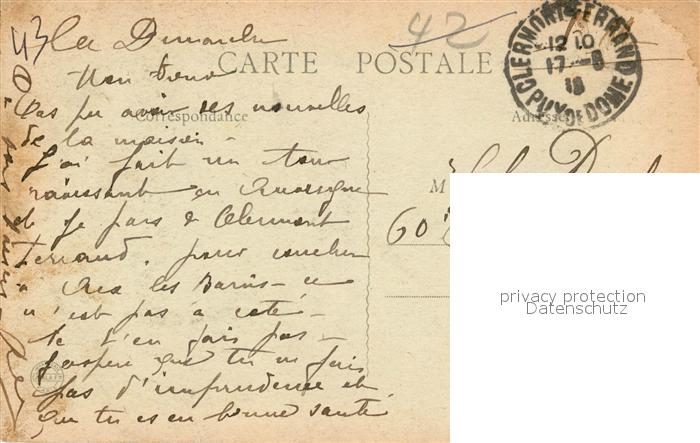 43 42
Ce Dimanche
Mon
CARTE POSTALE
CLERMONT-FERRAND
12 10
17 - 8
18
PUY DE DOME
Correspondance
Adresse
Pas pu avoir des nouvelles
de la maison -
J'ai fait un tour
ravissant en Auvergne
et je pars à Clermont
Ferrand, pour coucher
à Aix les Bains - ce
n'est pas à coté -
Ne t'en fais pas -
J'espère que tu ne fais
pas d'imprudence et
que tu es en bonne santé
M
60
privacy protection
Datenschutz